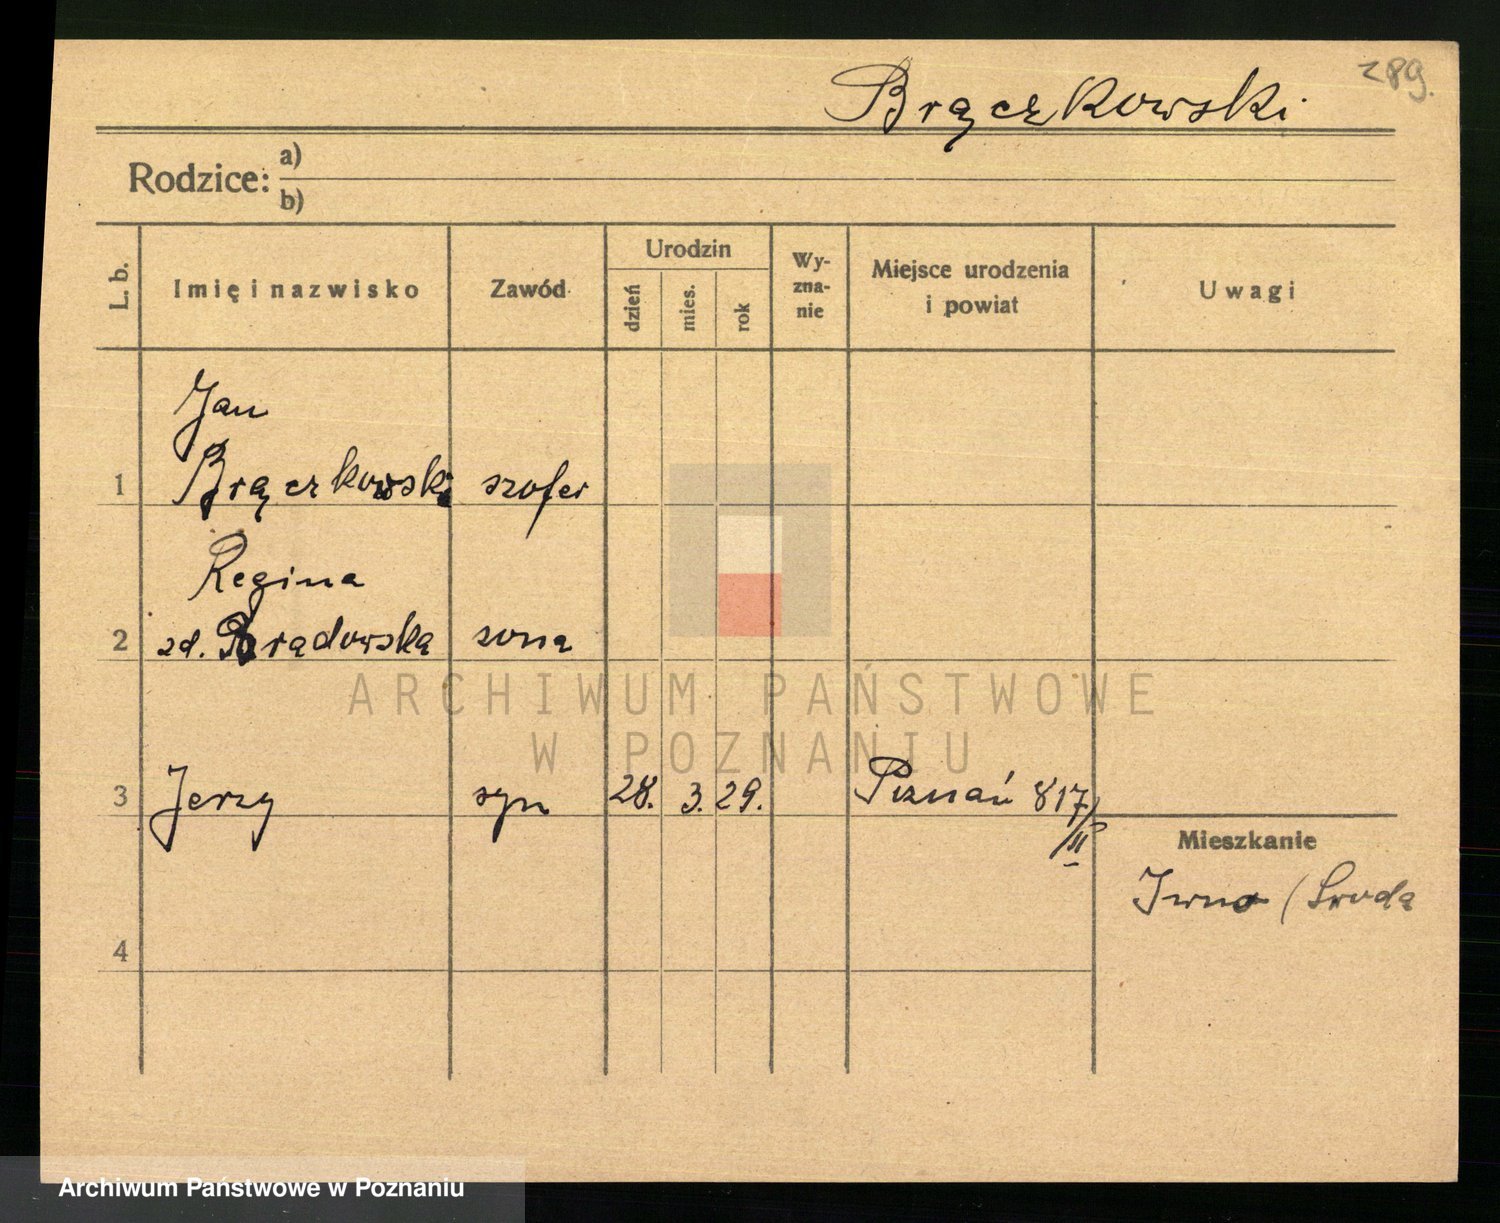 289.
Brączkowski
Rodzice: a)
b)
L. b.
Imię i nazwisko
Zawód
Urodzin
dzień
mies.
rok
Wy-
zna-
nie
Miejsce urodzenia
i powiat
Uwagi
Jan
1 Brączkowski szofer
Regina
2 zd. Prądowska żona
3 Jerzy syn 28. 3. 29. Poznań 817/
II
Mieszkanie
Iwno (Środa
4
ARCHIWUM PAŃSTWOWE
W POZNANIU
Archiwum Państwowe w Poznaniu